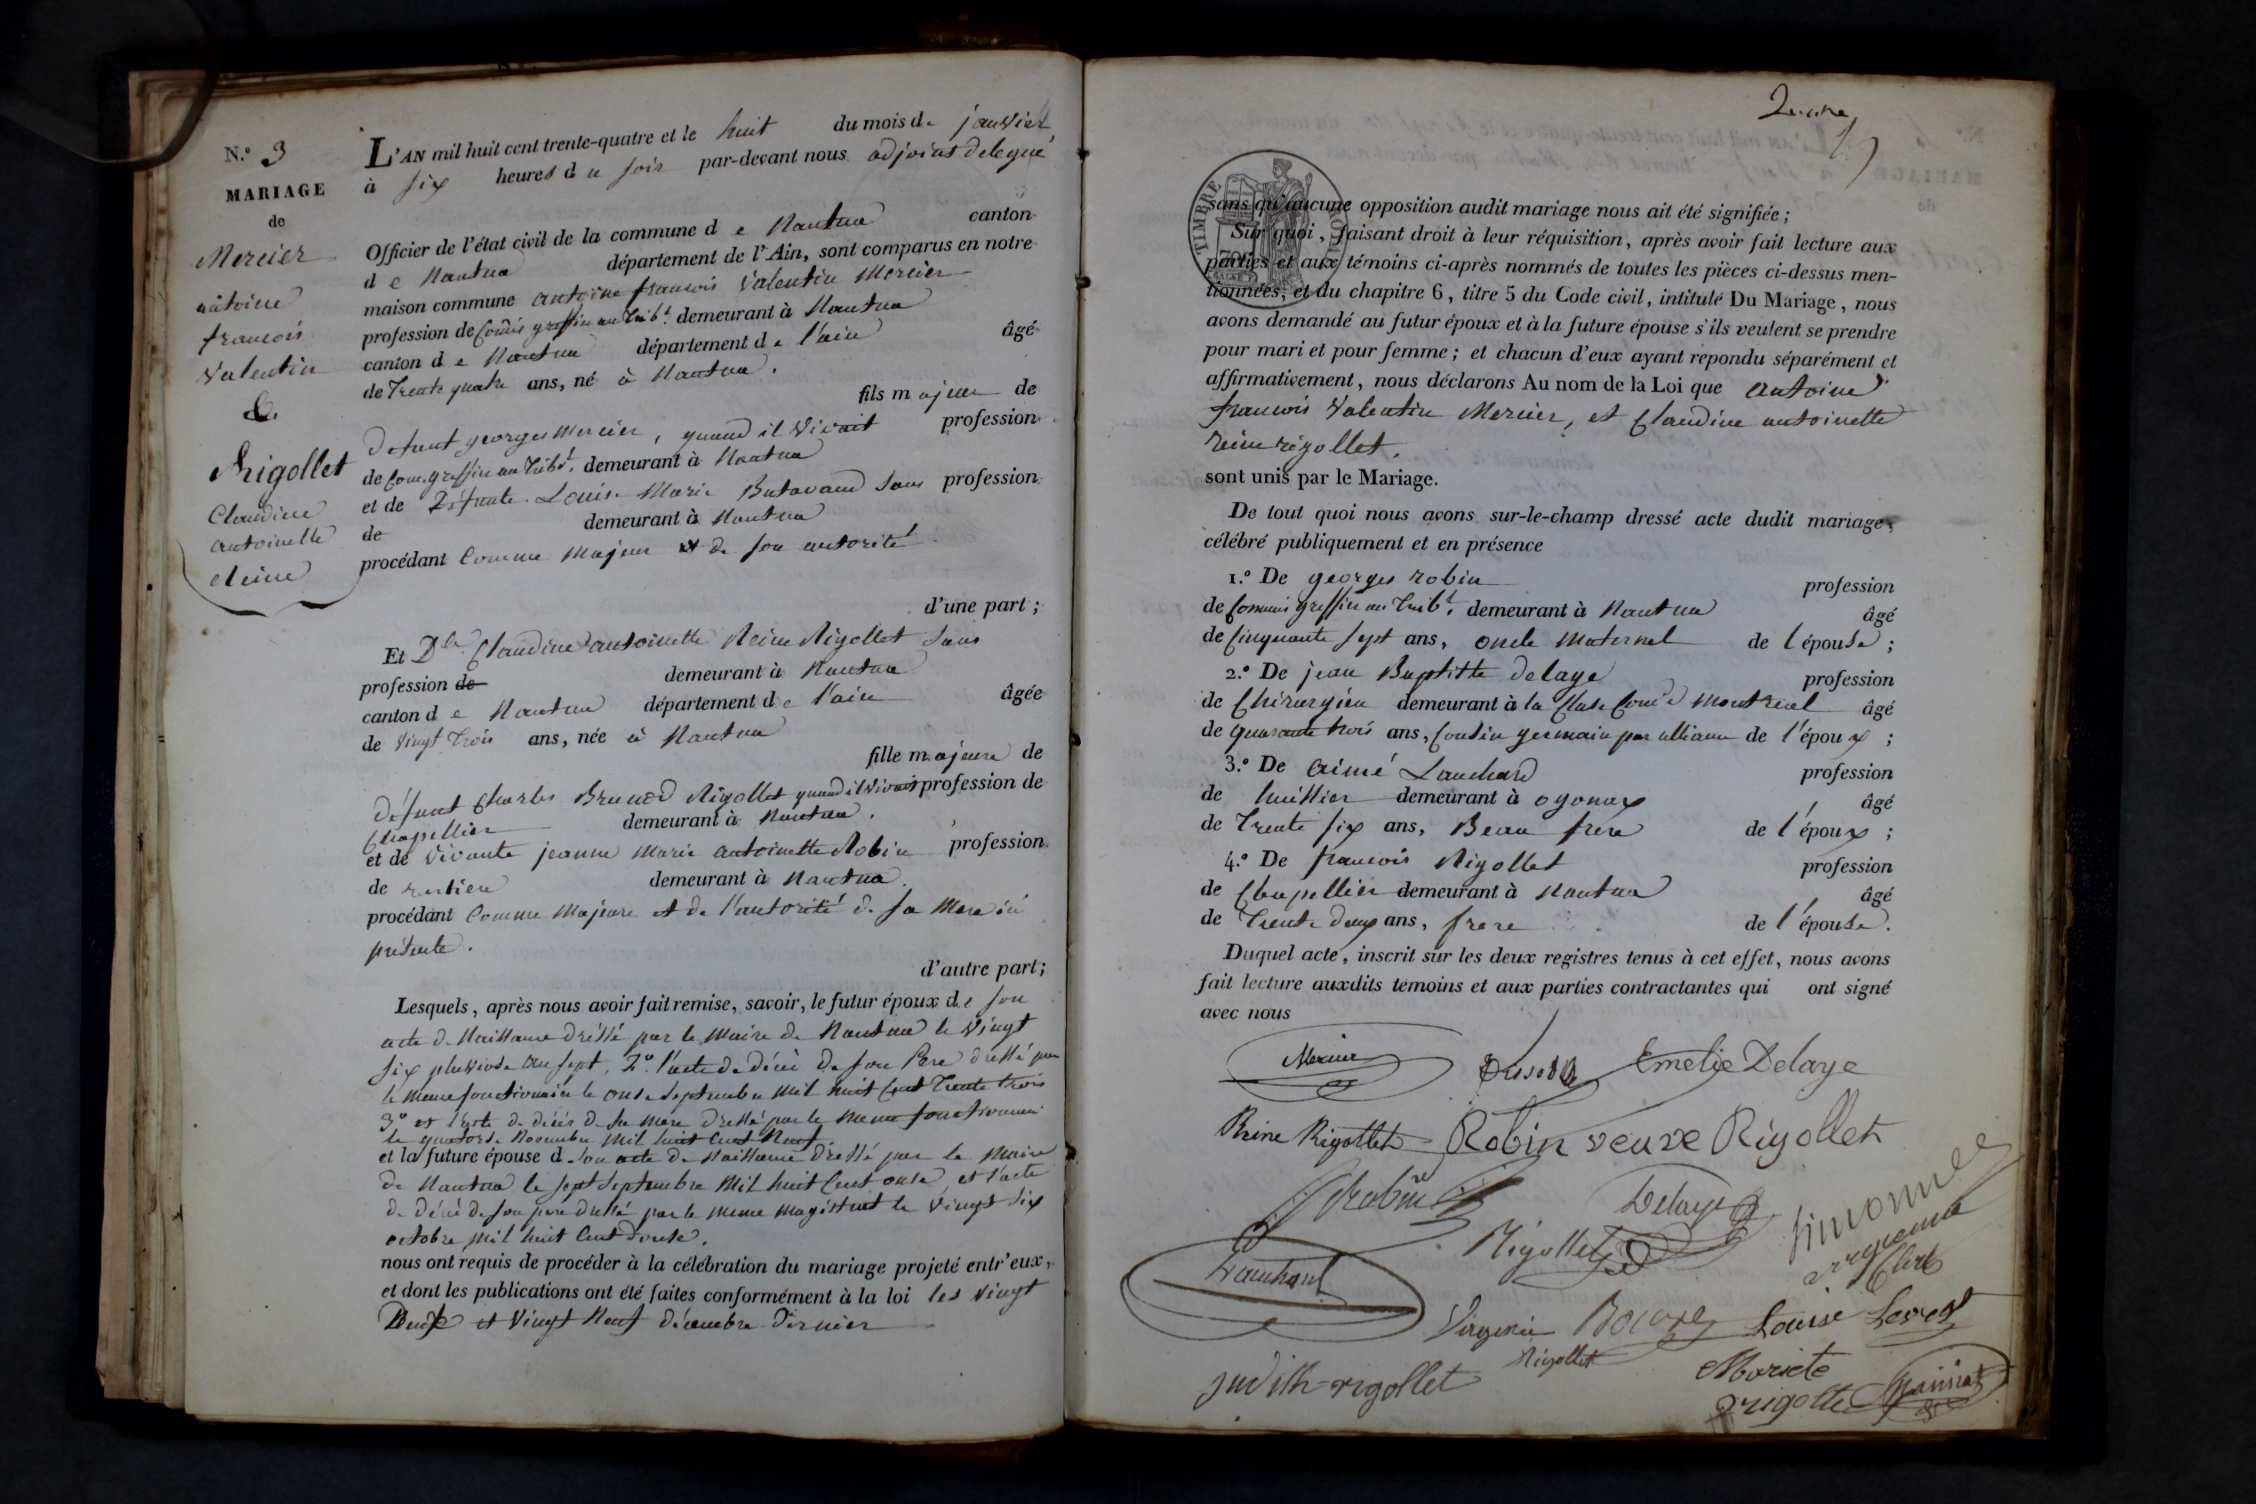 N.o 3
MARIAGE
de
Mercier
antoine
francois
Valentin
&
Rigollet
Claudine
antoinette
Reine
L'AN mil huit cent trente-quatre et le huit du mois de janvier,
à six heures du soir par-devant nous adjoint delegué
Officier de l'état civil de la commune de Nantua canton
de Nantua département de l'Ain, sont comparus en notre
maison commune antoine francois Valentin Mercier
profession de Commis greffier au Tribl. demeurant à Nantua
canton de Nantua département de l'ain âgé
de Trente quatre ans, né à Nantua.
fils majeur de
defunt georges Mercier, quand il vivait profession
de Com. greffier au Tribl. demeurant à Nantua
et de Défunte Louise Marie Butavand Sans profession
de demeurant à Nantua
procédant Comme Majeur et de son autorité
d'une part;
Et Dlle Claudine antoinette Reine Rigollet Sans
profession de demeurant à Nantua
canton de Nantua département de l'ain âgée
de Vingt Trois ans, née à Nantua
fille majeure de
défunt Charles Bruno Rigollet quand il vivait profession de
Chapellier demeurant à Nantua.
et de vivante jeanne Marie antoinette Robin profession
de rentiere demeurant à Nantua.
procédant Comme Majeure et de l'autorité de sa Mere ici
présente.
d'autre part;
Lesquels, après nous avoir fait remise, savoir, le futur époux de son
acte de Naissance dressé par le Maire de Nantua le Vingt
six pluviose an sept, 2o. l'acte de décès de son Pere dressé par
le meme fonctionnaire le onze Septembre Mil huit Cent Trente trois
3o et l'acte de décès de sa Mere dressé par le meme fonctionnaire
le quatorze Novembre Mil huit Cent Neuf
et la future épouse de son acte de Naissance dréssé par le Maire
de Nantua le sept Septembre Mil huit Cent onze, et l'acte
de décès de son pere dressé par le meme magistrat le Vingt Six
octobre Mil huit Cent Douze.
nous ont requis de procéder à la célébration du mariage projeté entr'eux,
et dont les publications ont été faites conformément à la loi les Vingt
Deux et Vingt Neuf décembre Dernier
TIMBRE ROYAL
sans qu'aucune opposition audit mariage nous ait été signifiée;
Sur quoi, faisant droit à leur réquisition, après avoir fait lecture aux
parties et aux témoins ci-après nommés de toutes les pièces ci-dessus men-
tionnées, et du chapitre 6, titre 5 du Code civil, intitulé Du Mariage, nous
avons demandé au futur époux et à la future épouse s'ils veulent se prendre
pour mari et pour femme; et chacun d'eux ayant répondu séparément et
affirmativement, nous déclarons Au nom de la Loi que antoine
francois Valentin Mercier, et Claudine antoinette
reine rigollet.
sont unis par le Mariage.
De tout quoi nous avons sur-le-champ dressé acte dudit mariage,
célébré publiquement et en présence
1.o De georges robin profession
de Commis greffier au Tribl. demeurant à Nantua âgé
de Cinquante Sept ans, oncle maternel de l'épouse;
2.o De jean Baptiste delaye profession
de Chirurgien demeurant à la Cluse Come Montreal âgé
de quarante trois ans, Cousin germain par alliance de l'époux;
3.o De aimé Lanchard profession
de huissier demeurant à oyonax âgé
de Trente six ans, Beau frere de l'époux;
4.o De francois Rigollet profession
de Chapellier demeurant à Nantua âgé
de Trente Deux ans, frere de l'épouse.
Duquel acte, inscrit sur les deux registres tenus à cet effet, nous avons
fait lecture auxdits témoins et aux parties contractantes qui ont signé
avec nous
Mercier
Emelie Delaye
Reine Rigollet Robin veuve Rigollet
Robin
Delaye
Rigollet
Simonnet
Clerc
Lanchard
Virginie Louise
Rigollet
judith rigollet
Mariete
rigollet